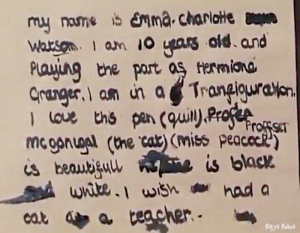 my name is Emma. Charlotte
Watsom. I am 10 years old. and
Playing the part as Hermione
Granger. I am in a Tranfiguration.
I love this pen (quill). Profes
Proffser
mcgonugal (the cat) (miss peacock)
is beautifull is black
white. I wish had a
cat a teacher.-